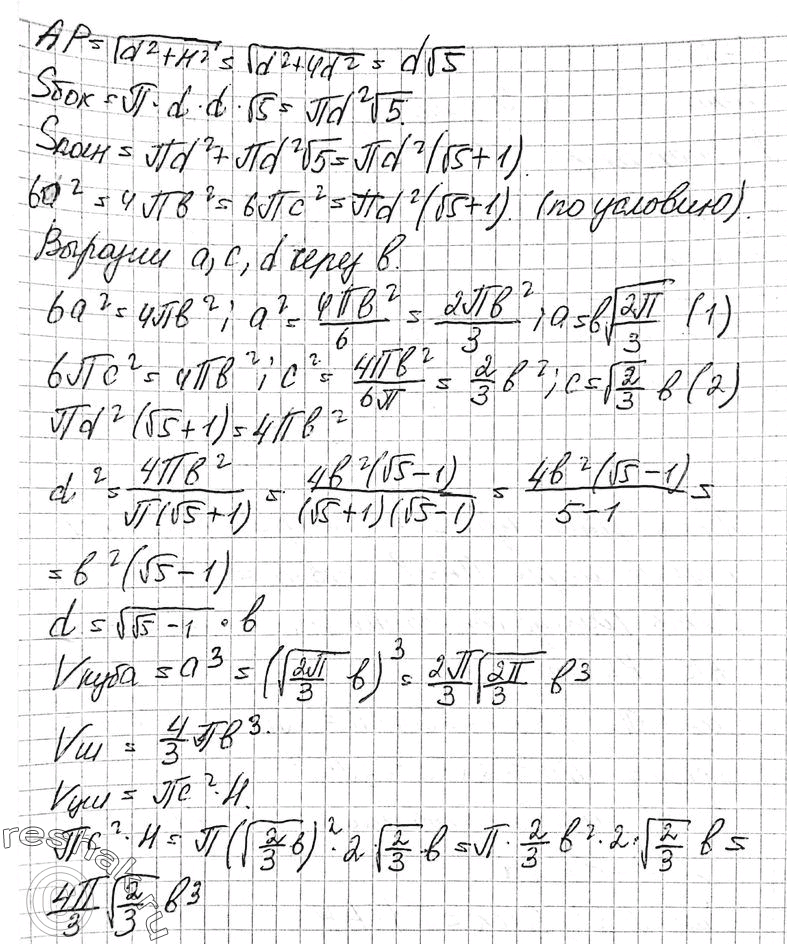 AP = √(d² + H²) = √(d² + 4d²) = d√5
Sбок = π · d · d · √5 = πd²√5.
Sкон = πd² + πd²√5 = πd²(√5 + 1).
6a² = 4πв² = 6πc² = πd²(√5 + 1). (по условию).
Выразим a, c, d через в.
6a² = 4πв²; a² = 4πв²/6 = 2πв²/3; a = в√(2π/3) (1)
6πc² = 4πв²; c² = 4πв²/6π = 2/3 в²; c = √(2/3) в (2)
πd²(√5 + 1) = 4πв²
d² = 4πв²/π(√5 + 1) = 4в²(√5 − 1)/(√5 + 1)(√5 − 1) = 4в²(√5 − 1)/5 − 1 =
= в²(√5 − 1)
d = √(√5 − 1) · в
Vкуба = a³ = (√(2π/3) в)³ = 2π/3 √(2π/3) в³
Vш = 4/3 πв³.
Vцил = πc² · H.
πc² · H = π(√(2/3) в)² · 2 · √(2/3) · в = π · 2/3 в² · 2 · √(2/3) в =
4π/3 √(2/3) в³
reshak.ru